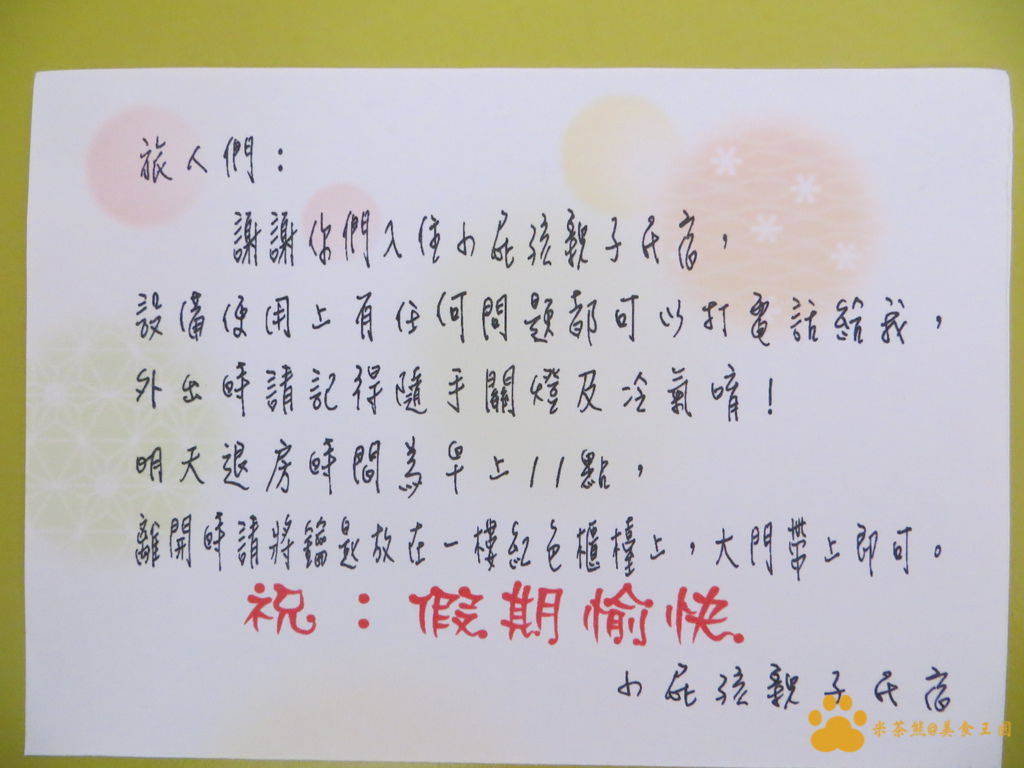 旅人們：
謝謝你們入住小屁孩親子民宿，
設備使用上有任何問題都可以打電話給我，
外出時請記得隨手關燈及冷氣唷！
明天退房時間為早上11點，
離開時請將鑰匙放在一樓紅色櫃檯上，大門帶上即可。
祝：假期愉快
小屁孩親子民宿
米茶熊@美食王國